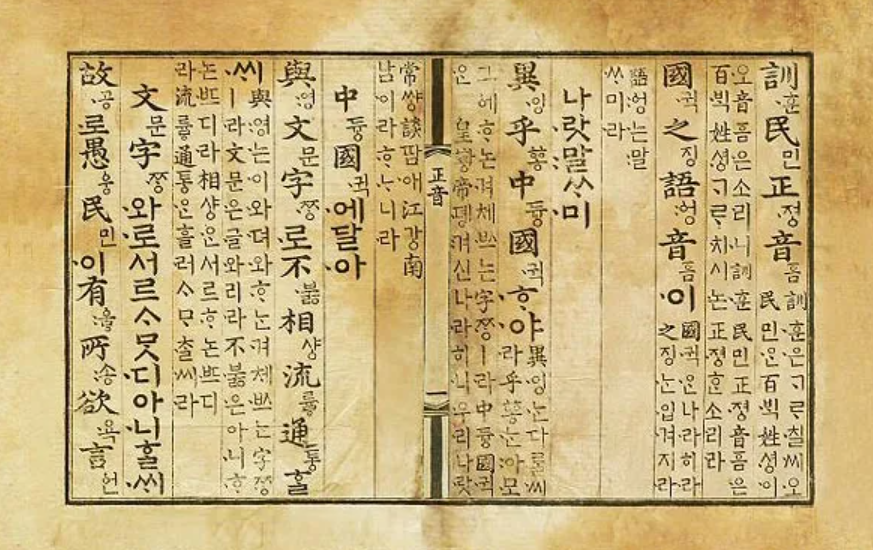 訓훈民민正졍音흠訓훈은ᄀᆞᄅᆞ칠씨오
民민ᄋᆞᆫ百ᄇᆡᆨ姓셩이
오音흠은소리니訓훈民민正졍音흠은
百ᄇᆡᆨ姓셩ᄀᆞᄅᆞ치시논正졍ᄒᆞᆫ소리라
國귁之징語ᅌᅥᆼ音흠이國귁ᄋᆞᆫ나라히라
之징ᄂᆞᆫ입겨지라
語ᅌᅥᆼ는말
ᄊᆞ미라
나랏말ᄊᆞ미
異잉乎ᅘᅩᆼ中듕國귁ᄒᆞ야異잉ᄂᆞᆫ다ᄅᆞᆯ씨
라乎ᅘᅩᆼᄂᆞᆫ아모
그ᅌᅦᄒᆞ논겨체ᄡᅳ는字ᄍᆞᆼㅣ라中듕國귁
은 皇황帝뎽겨신나라히니우리나랏
正音
一
常썅談땀애江강南
남이라ᄒᆞᄂᆞ니라
中듕國귁에달아
與영文문字ᄍᆞᆼ로不붏相샹流륳通통ᄒᆞᆯ
씨與영는이와뎌와ᄒᆞᄂᆞᆫ겨체ᄡᅳ는字ᄍᆞᆼ
ㅣ라文문은글와리라不붏은아니ᄒᆞ
논ᄠᅳ디라相샹ᄋᆞᆫ서르ᄒᆞ논ᄠᅳ디
라流륳通통ᄋᆞᆫ흘러ᄉᆞᄆᆞᄎᆞᆯ씨라
文문字ᄍᆞᆼ와로서르ᄉᆞᄆᆞᆺ디아니ᄒᆞᆯ씨
故공로愚웅民민이有ᅌᅮᇢ所송欲욕言언